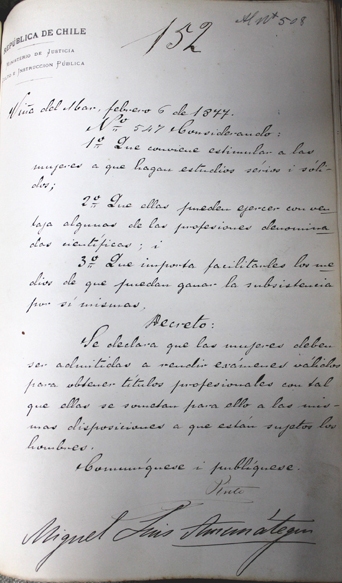 Al Nº 508
152
REPÚBLICA DE CHILE
MINISTERIO DE JUSTICIA
CULTO E INSTRUCCION PÚBLICA
Viña del Mar, febrero 6 de 1877.
Nº 547 Considerando:
1º Que conviene estimular a las
mujeres a que hagan estudios sérios i sóli-
dos;
2º Que ellas pueden ejercer con ven-
taja algunas de las profesiones denomina
das científicas; i
3º Que importa facilitarles los me
dios de que puedan ganar la subsistencia
por sí mismas,
Decreto:
Se declara que las mujeres deben
ser admitidas a rendir exámenes válidos
para obtener títulos profesionales con tal
que ellas se sometan para ello a las mis-
mas disposiciones a que están sujetos los
hombres.
Comuníquese i publíquese.
Pinto
Miguel Luis Amunátegui